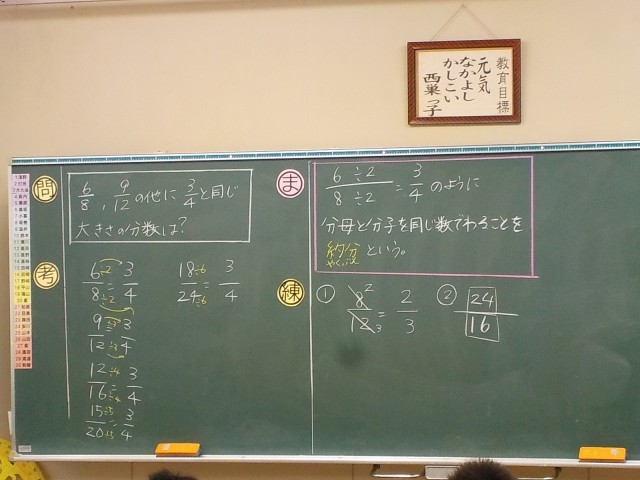 教育目標
元気
なかよし
かしこい
西巣っ子
問
6/8, 9/12の他に3/4と同じ
大きさの分数は?
考
6÷2/8÷2=3/4
9÷3/12÷3=3/4
12÷4/16÷4=3/4
15÷5/20÷5=3/4
18÷6/24÷6=3/4
ま
6÷2/8÷2=3/4のように
分母と分子を同じ数でわることを
約分という。
やくぶん
練
① 8 2/12 3=2/3
② 24/16